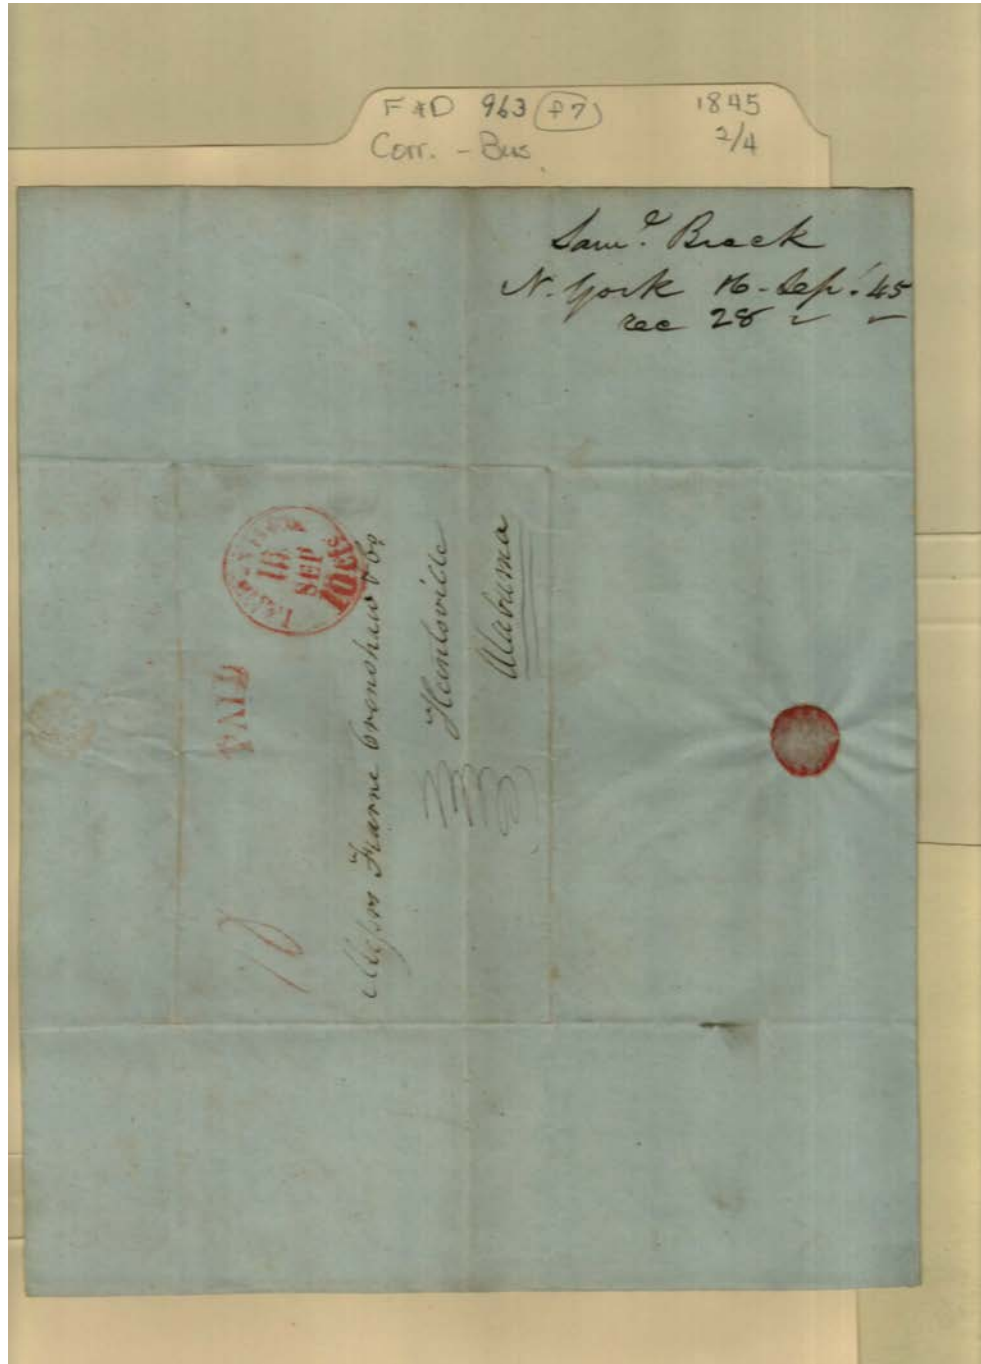 F&D 963 (f7) 1845
Corr. - Bus 2/4
Saml. Brock
N. York 16 - Sep. '45
rec 28 " "
NEW-YORK
16
SEP
10 cts
PAID
10
Messrs Fearne Crenshaw & Co
Huntsville
Alabama